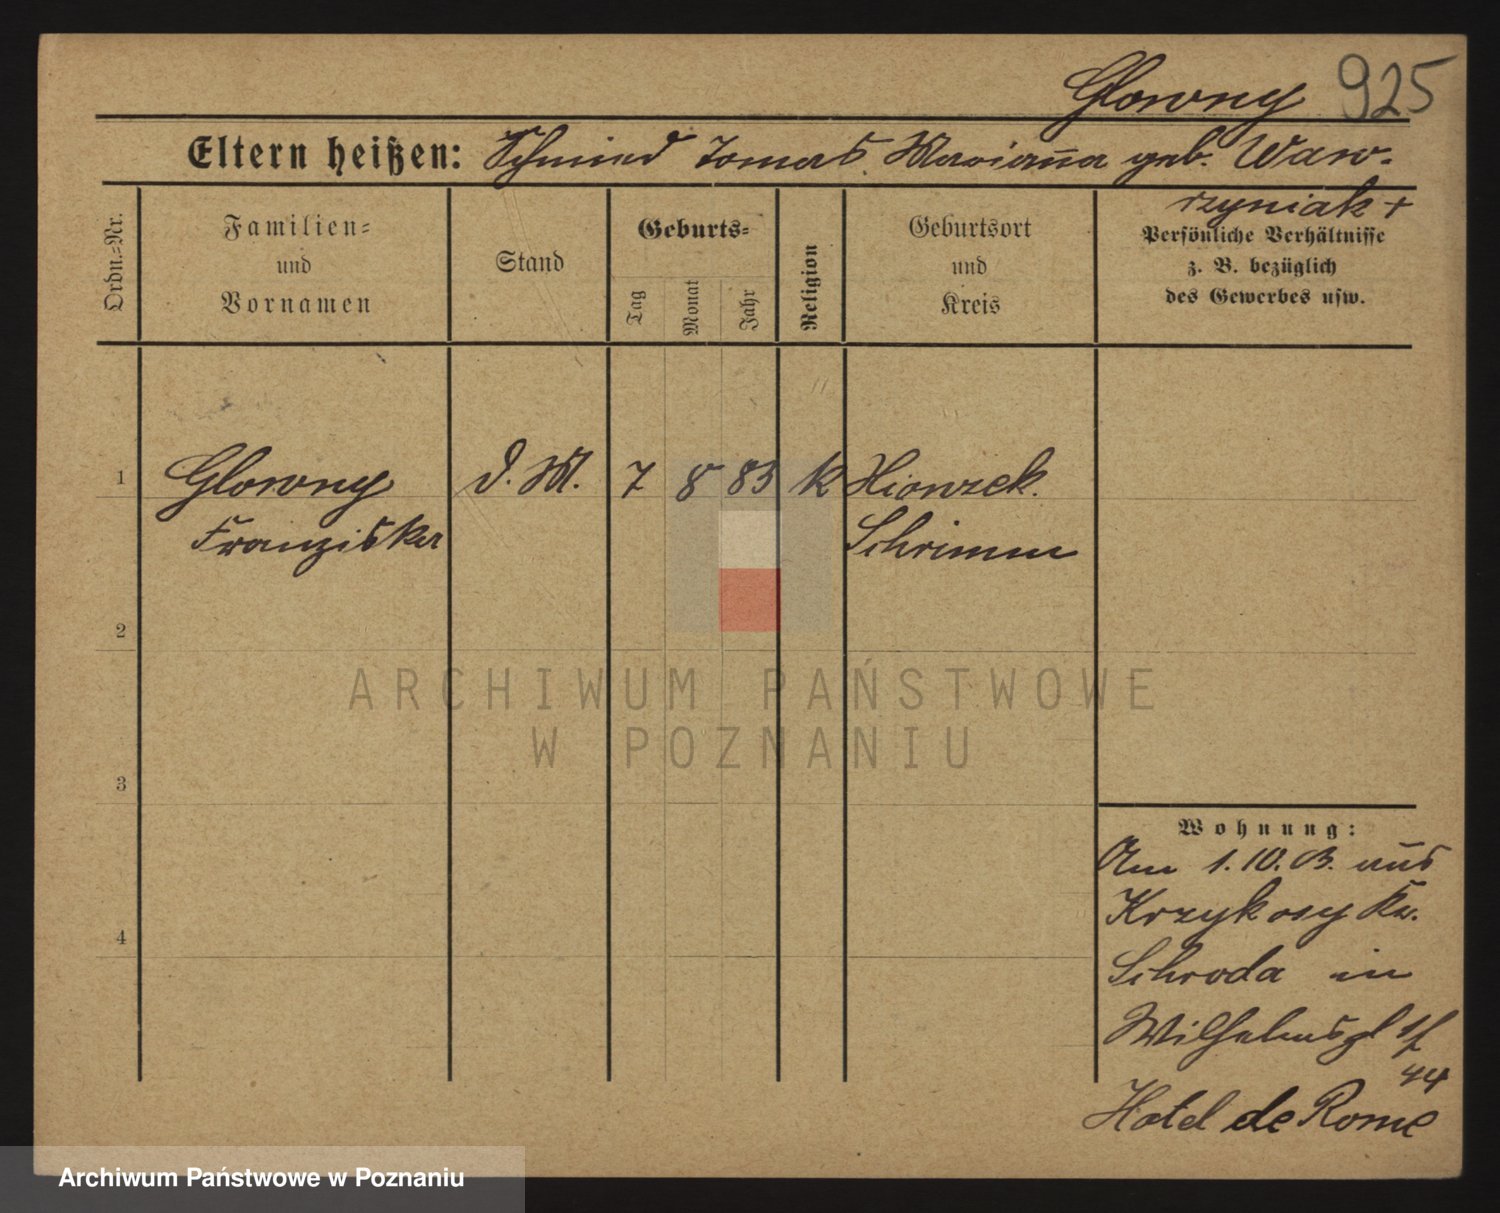 Glowny 925
Eltern heißen: Schmied Tomas Marianna geb. Waw-
rzyniak +
Ordn.-Nr.
Familien-
und
Vornamen
Stand
Geburts-
Tag
Monat
Jahr
Religion
Geburtsort
und
Kreis
Persönliche Verhältnisse
z. B. bezüglich
des Gewerbes usw.
1 Glowny D. M. 7 8 83 k Xionzek.
Franziska Schrimm
2
ARCHIWUM PAŃSTWOWE
W POZNANIU
3
Wohnung:
Am 1.10.03. aus
Krzykosy Kr.
4
Schroda in
Wilhelmspl 1/
44
Hotel de Rome
Archiwum Państwowe w Poznaniu